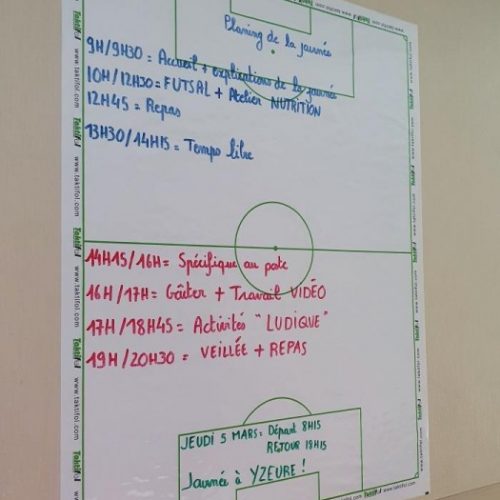 Planing de la journée
9H/9H30 = Accueil + explications de la journée
10H/12H30 = FUTSAL + Atelier NUTRITION
12H45 = Repas
13H30/14H15 = Temps libre
14H15/16H = Spécifique au poste
16H/17H = Gôuter + Travail VIDÉO
17H/18H45 = Activités "LUDIQUE"
19H/20H30 = VEILLÉE + REPAS
JEUDI 5 MARS : Départ 8H15
RETOUR 18H15
Journée à YZEURE !
Taktifol www.taktifol.com